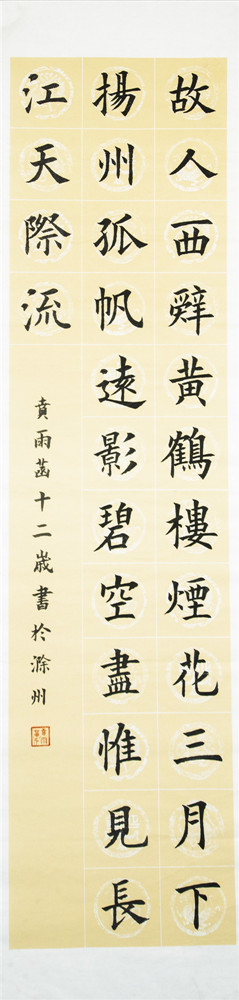 故人西辭黃鶴樓煙花三月下
揚州孤帆遠影碧空盡惟見長
江天際流
賁雨菡十二歲書於滁州